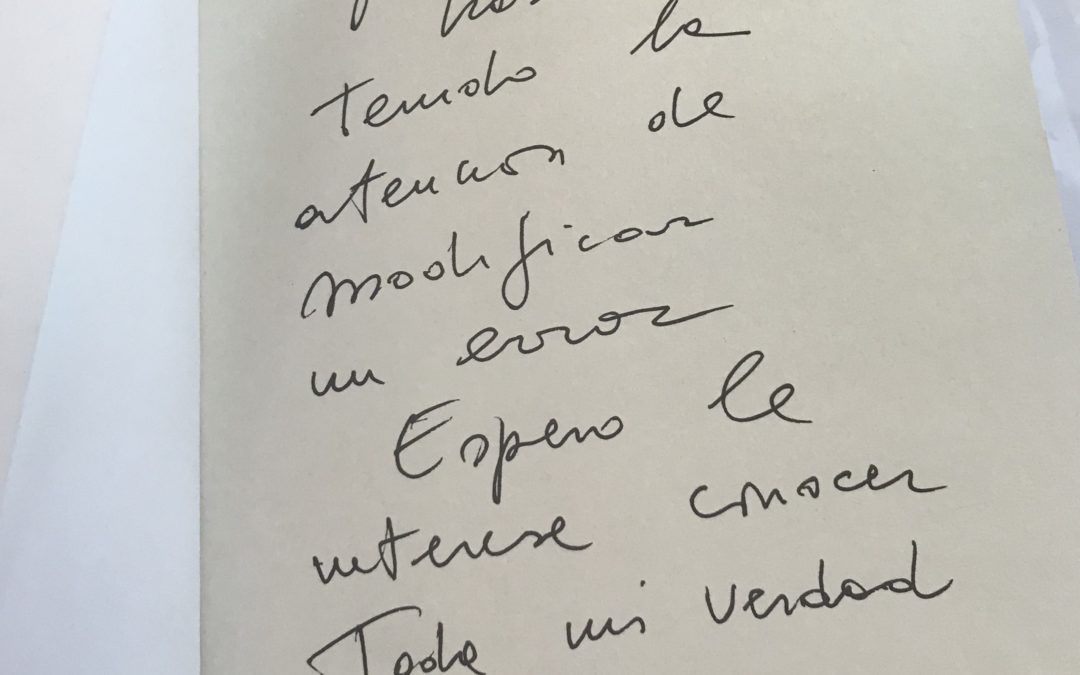 tenido la
atención de
modificar
un error
Espero le
interese conocer
Toda mi verdad